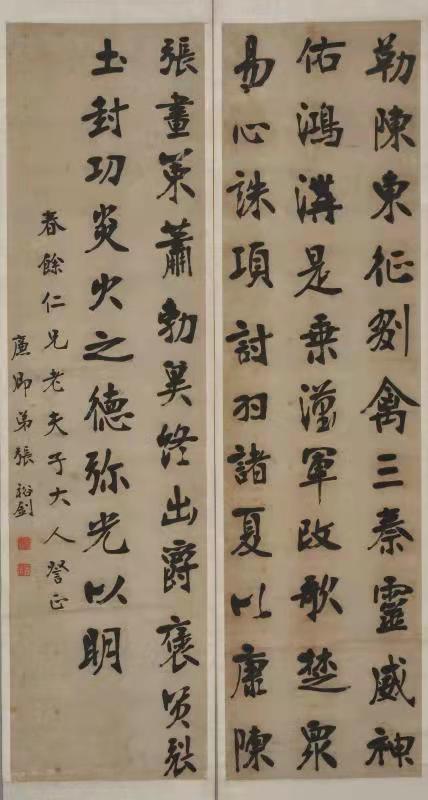 勒陳東征剟禽三秦靈威神
佑鴻溝是乘漢軍改歌楚眾
易心誅項討羽諸夏以康陳
張畫策蕭勃翼終出爵褒賢裂
土封功炎火之德弥光以明
春餘仁兄老夫子大人詧正
廉卿弟張裕釗